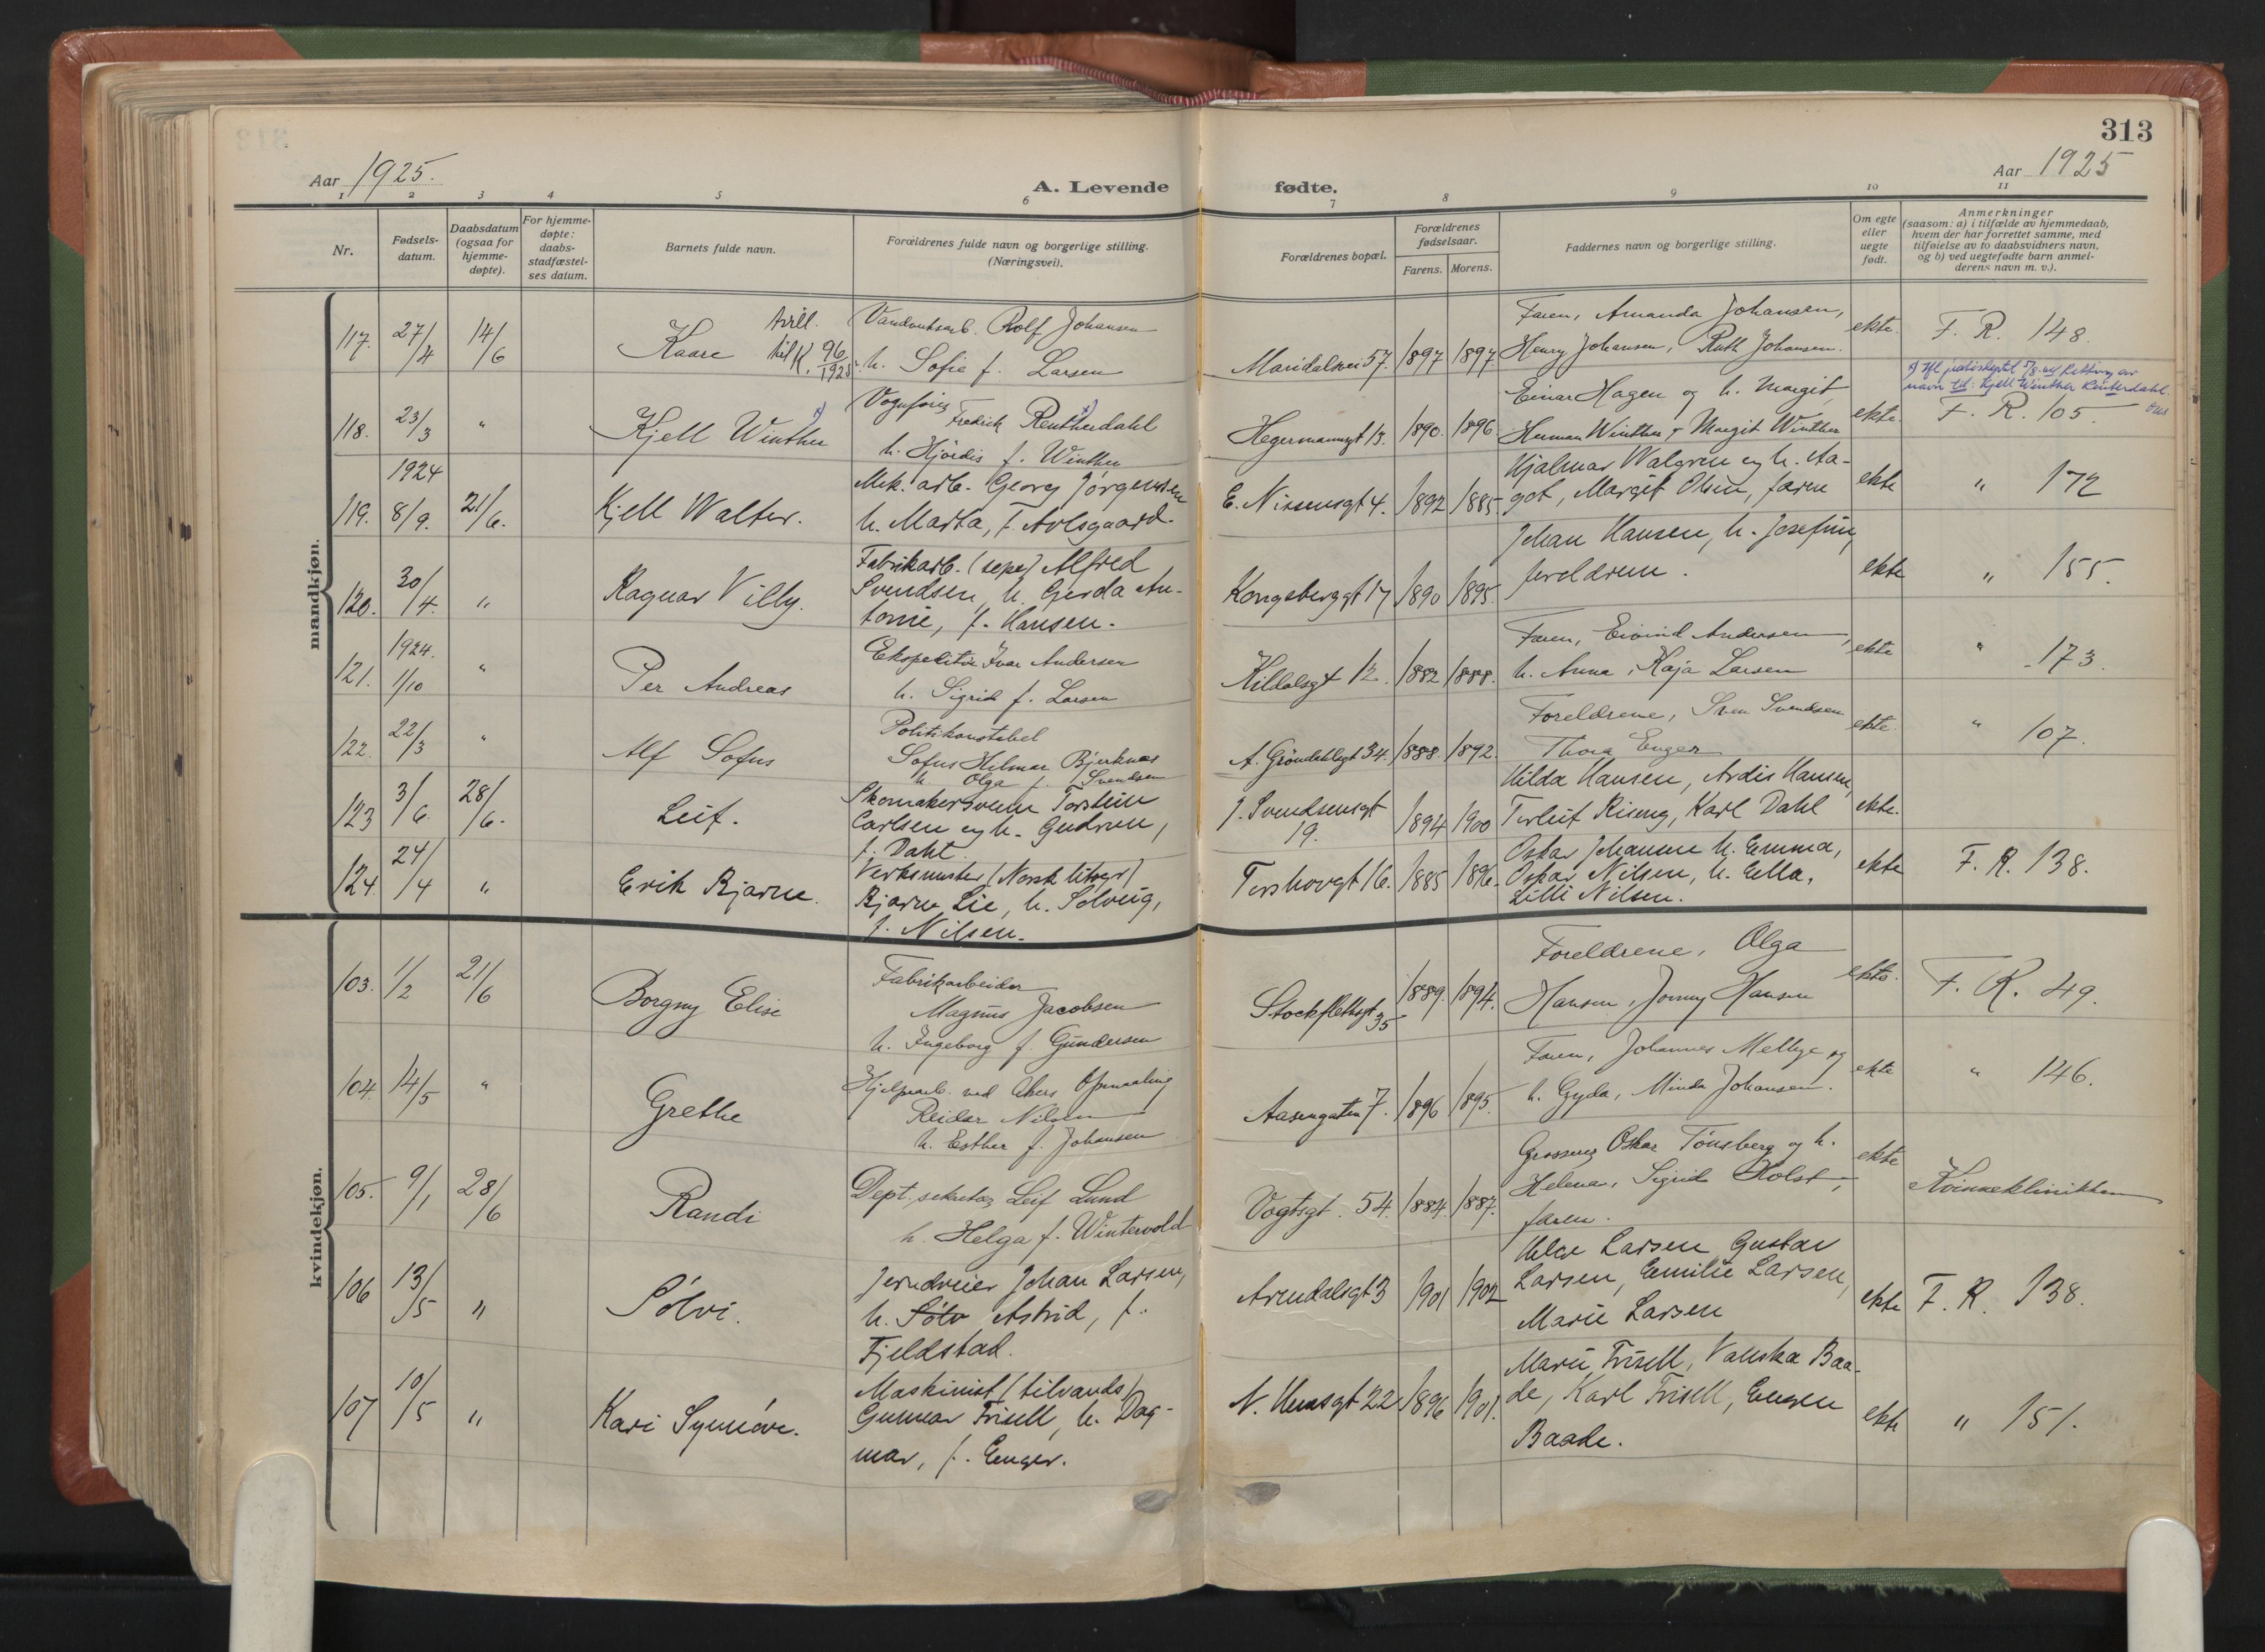 313
Aar 1925.
A. Levende fødte.
Aar 1925
1 2 3 4 5 6 7 8 9 10 11
Nr.
Fødsels-
datum.
Daabsdatum
(ogsaa for
hjemme-
døpte).
For hjemme-
døpte:
daabs-
stadfæstel-
ses datum.
Barnets fulde navn.
Forældrenes fulde navn og borgerlige stilling.
(Næringsvei).
Forældrenes bopæl.
Forældrenes
fødselsaar.
Farens. Morens.
Faddernes navn og borgerlige stilling.
Om egte
eller
uegte
født.
Anmerkninger
(saasom: a) i tilfælde av hjemmedaab,
hvem der har forrettet samme, med
tilføielse av to daabsvidners navn,
og b) ved uegtefødte barn anmel-
derens navn m. v.).
mandkjøn.
117. 27/4 14/6 Kaare
til K. 96/1925.
Rolf Johansen
h. Sofie f. Larsen
Maridalsvei 57. 1897 1897.
Faren, Amanda Johansen,
Henry Johansen, Ruth Johansen.
ekte. F. R. 148.
118. 23/3 " Kjell Winther x)
Vognfører
Fredrik Rentherdahl x)
h. Hjördis f. Winther
Hegermannsgt 13. 1890. 1896.
Einar Hagen og h. Margit,
Herman Winther & Margit Winther
ekte. F. R. 105
navn til: Kjell Winther
119. 1924 8/9. 21/6. Kjell Walter.
Mek. arb. Georg Jörgensen
h. Marta, f. Avlsgaard.
E. Nissensgt 4. 1892 1885
Hjalmar Walgren og h. Aa-
got, Margit Olsen, faren
ekte " 172
120. 30/4. " Ragnar Villy.
Fabrikarb. (sepe) Alfred
Svendsen, h. Gerda An-
tonie, f. Hansen.
Kongsberggt 17 1890 1895.
Johan Hansen, h. Josefine,
foreldrene.
ekte " 155.
121. 1924. 1/10 " Per Andreas
Ekspeditör Ivar Andersen
h. Sigrid f. Larsen
Kildalsgt 12. 1882 1888.
Faren, Eivind Andersen,
h. Anna, Kaja Larsen
ekte " 173.
122. 22/3 " Alf Sofus
Politikonstabel
Sofus Hilmar Bjerknes
h. Olga f. Svendsen
A. Gröndahlsgt 34. 1888. 1892.
Foreldrene, Sven Svendsen
Thora Enger
ekte. " 107.
123 3/6. 28/6. Leif.
Skomakersvenn Torstein
Carlsen og h. Gudrun,
f. Dahl.
J. Svendsensgt
19. 1894 1900
Hilda Hansen, Ardis Hansen,
Torleif Riseng, Karl Dahl
ekte.
124. 24/4 " Erik Bjarne.
Verksmester
Bjarne Lie, h. Solveig,
f. Nilsen.
Torshovgt 16. 1885 1896.
Oskar Johannes h. Emma,
Oskar Nilsen, h. Ella,
Lilli Nilsen.
ekte F. R. 138.
kvindekjøn.
103. 1/2 21/6 Borgny Elise
Fabrikarbeider
Magnus Jacobsen
h. Ingeborg f. Gundersen
Stockflethsgt
35 1889. 1894.
Foreldrene, Olga
Hansen, Jonny Hansen
ekte. F. R. 49.
104. 14/5 " Grethe
Hjelpearb. ved Akers Opmaaling
Reidar Nilsen
h. Esther f. Johansen
Aasengaten 7. 1896 1895.
Faren, Johannes Melbye og
h. Gyda, Minda Johansen.
ekte " 146.
105. 9/1 28/6 Randi
Dept. sekretær Leif Lund
h. Helga f. Wintervold
Vogtsgt. 54. 1884. 1887.
Grosserer Oskar Tönsberg og h.
Helena, Sigrid Holst,
faren.
ekte Kvinneklinikken
106 13/5 " Sölvi.
Jerndreier Johan Larsen,
h. Sölv Astrid, f.
Fjeldstad.
Arendalsgt 3 1901 1902
Larsen, Gustav
Larsen, Emilie Larsen,
Marie Larsen
ekte F. R. 138.
107 10/5 " Kari Synnöve.
Maskinist (tilvands)
Gunnar Frisell, h. Dag-
mar, f. Enger.
N. Huusgt 22 1896 1901.
Marie Frisell, Valeska Baa-
de, Karl Frisell, Eugen
Baade.
ekte " 151.